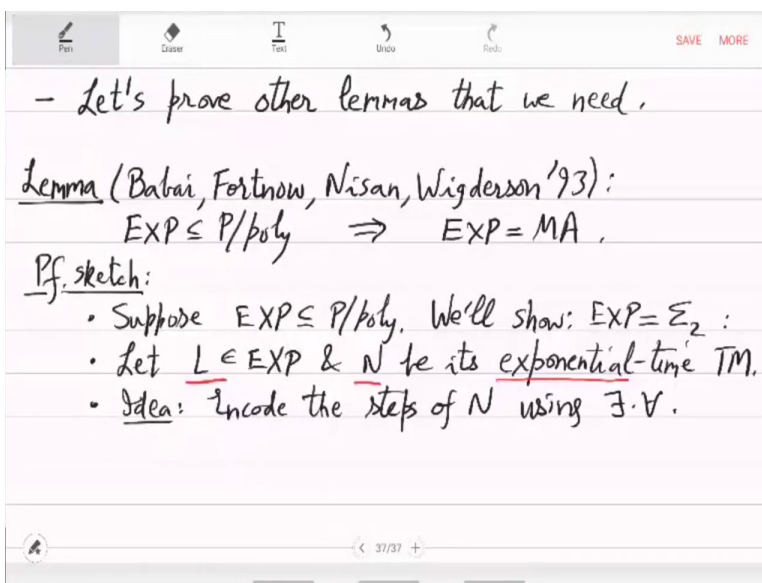 Pen Eraser Text Undo Redo SAVE MORE
- Let's prove other lemmas that we need.
Lemma (Babai, Fortnow, Nisan, Wigderson '93):
EXP ⊆ P/poly ⇒ EXP = MA.
Pf. sketch:
• Suppose EXP ⊆ P/poly. We'll show: EXP = Σ₂ :
• Let L ∈ EXP & N be its exponential-time TM.
• Idea: Encode the steps of N using ∃·∀.
< 37/37 +